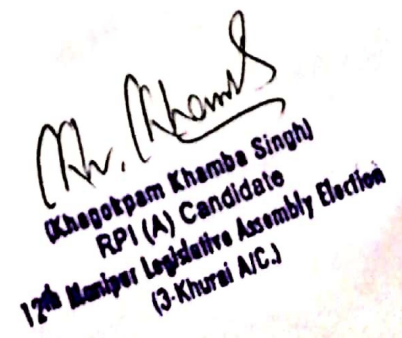 Kh. Khamba
(Khagokpam Khamba Singh)
RPI (A) Candidate
12th Manipur Legislative Assembly Election
(3-Khurai A/C.)